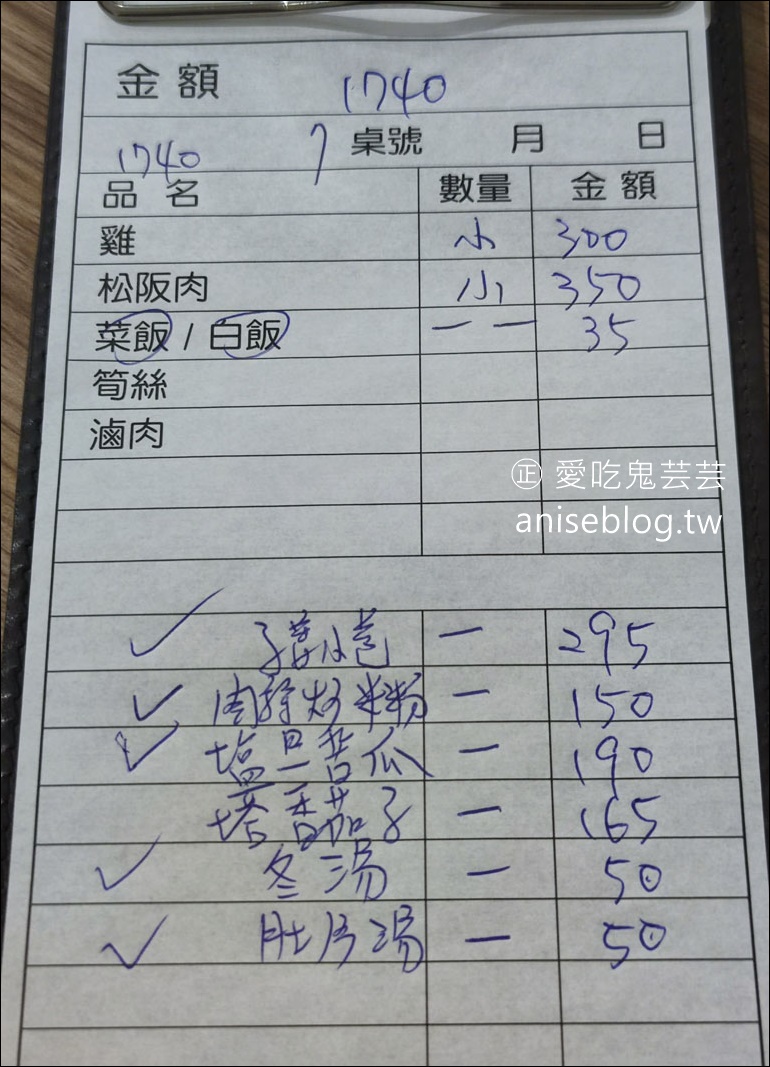 金額 1740
1740 7 桌號 月 日
品名 數量 金額
雞 小 300
松阪肉 小 350
菜飯 / 白飯 一 一 35
筍絲
滷肉
㊣ 愛吃鬼芸芸
aniseblog.tw
子薑小卷 一 295
肉絲炒米粉 一 150
塩旦苦瓜 一 190
塔香茄子 一 165
冬湯 一 50
肚片湯 一 50